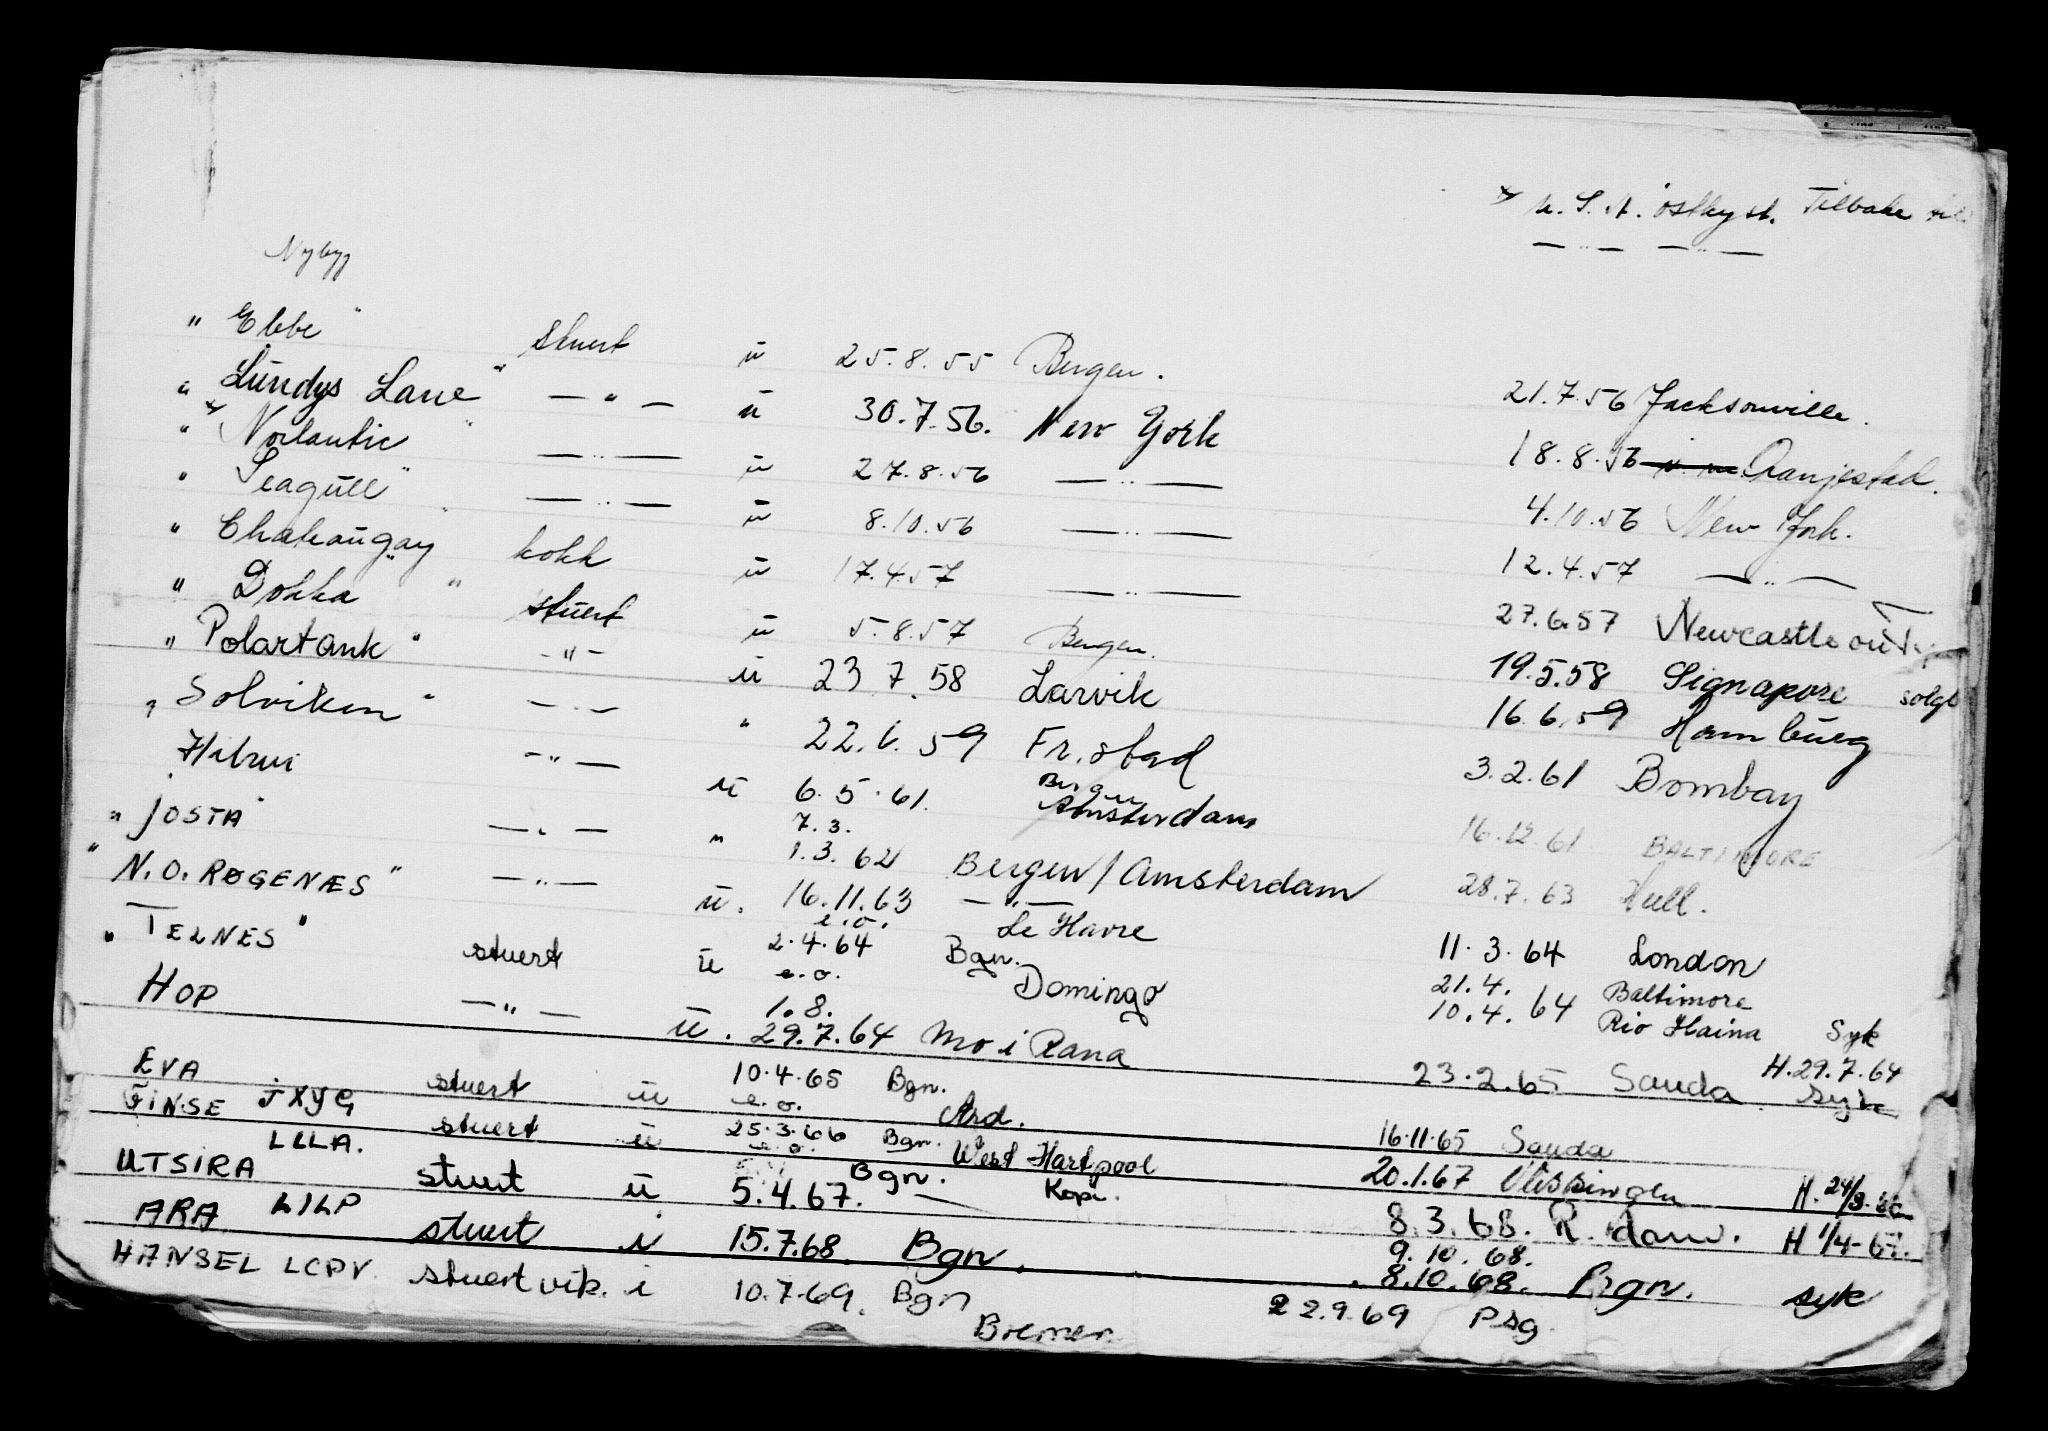 U.S.A. østkyst. Tilbake til
— " — — " —
Nybygg
" Ebbe " stuert ū 25.8.55 Bergen. 21.7.56 Jacksonville.
" Lundys Lane " — " — ū 30.7.56. New York 18.8.56 Oranjestad.
" Norlantic " — " — ū 27.8.56 — " — 4.10.56 New York.
" Seagull " — " — ū 8.10.56 — " — 12.4.57 — " —
" Chateaugay " kokk ū 17.4.57 — " — 27.6.57 Newcastle on T
" Dokka " stuert ū 5.8.57 Bergen. 19.5.58 Signapore solgt
" Polartank " — " — ū 23.7.58 Larvik 16.6.59 Hamburg
" Solviken " — " — " 22.6.59 Fr.stad 3.2.61 Bombay
— " — ū 6.5.61. Bergen Amsterdam 16.12.61 BALTIMORE
" JOSTA " — " — " 7.3. 1.3.62 Bergen/Amsterdam 28.7.63 Hull.
" N.O. RØGENÆS " — " — ū. 16.11.63 e.o. — " — Le Havre 11.3.64 London
" TELNES " stuert ū 2.4.64 e.o. Bgn. Domingo 21.4. 10.4.64 Baltimore Rio Haina Syk
HOP — " — ū. 1.8. 29.7.64 Mo i Rana 23.2.65 Sauda H.29.7.64 Syk
EVA JXYG stuert ū 10.4.65 e.o. Bgn. Ard. 16.11.65 Sauda
FINSE LLLA. stuert ū 25.3.66 e.o. Bgn. West Hartpool 20.1.67 Vlissingen H. 24/3.66
UTSIRA stuert ū 5.4.67. Bgn. — Kopi. 8.3.68. R.dam. H 1/4-67.
ARA LILP stuert i 15.7.68. Bgn. 9.10.68. 8.10.68. Bgn. syk
HANSEL LCPV stuert vik. i 10.7.69. Bgn Bremen 22.9.69 Psg